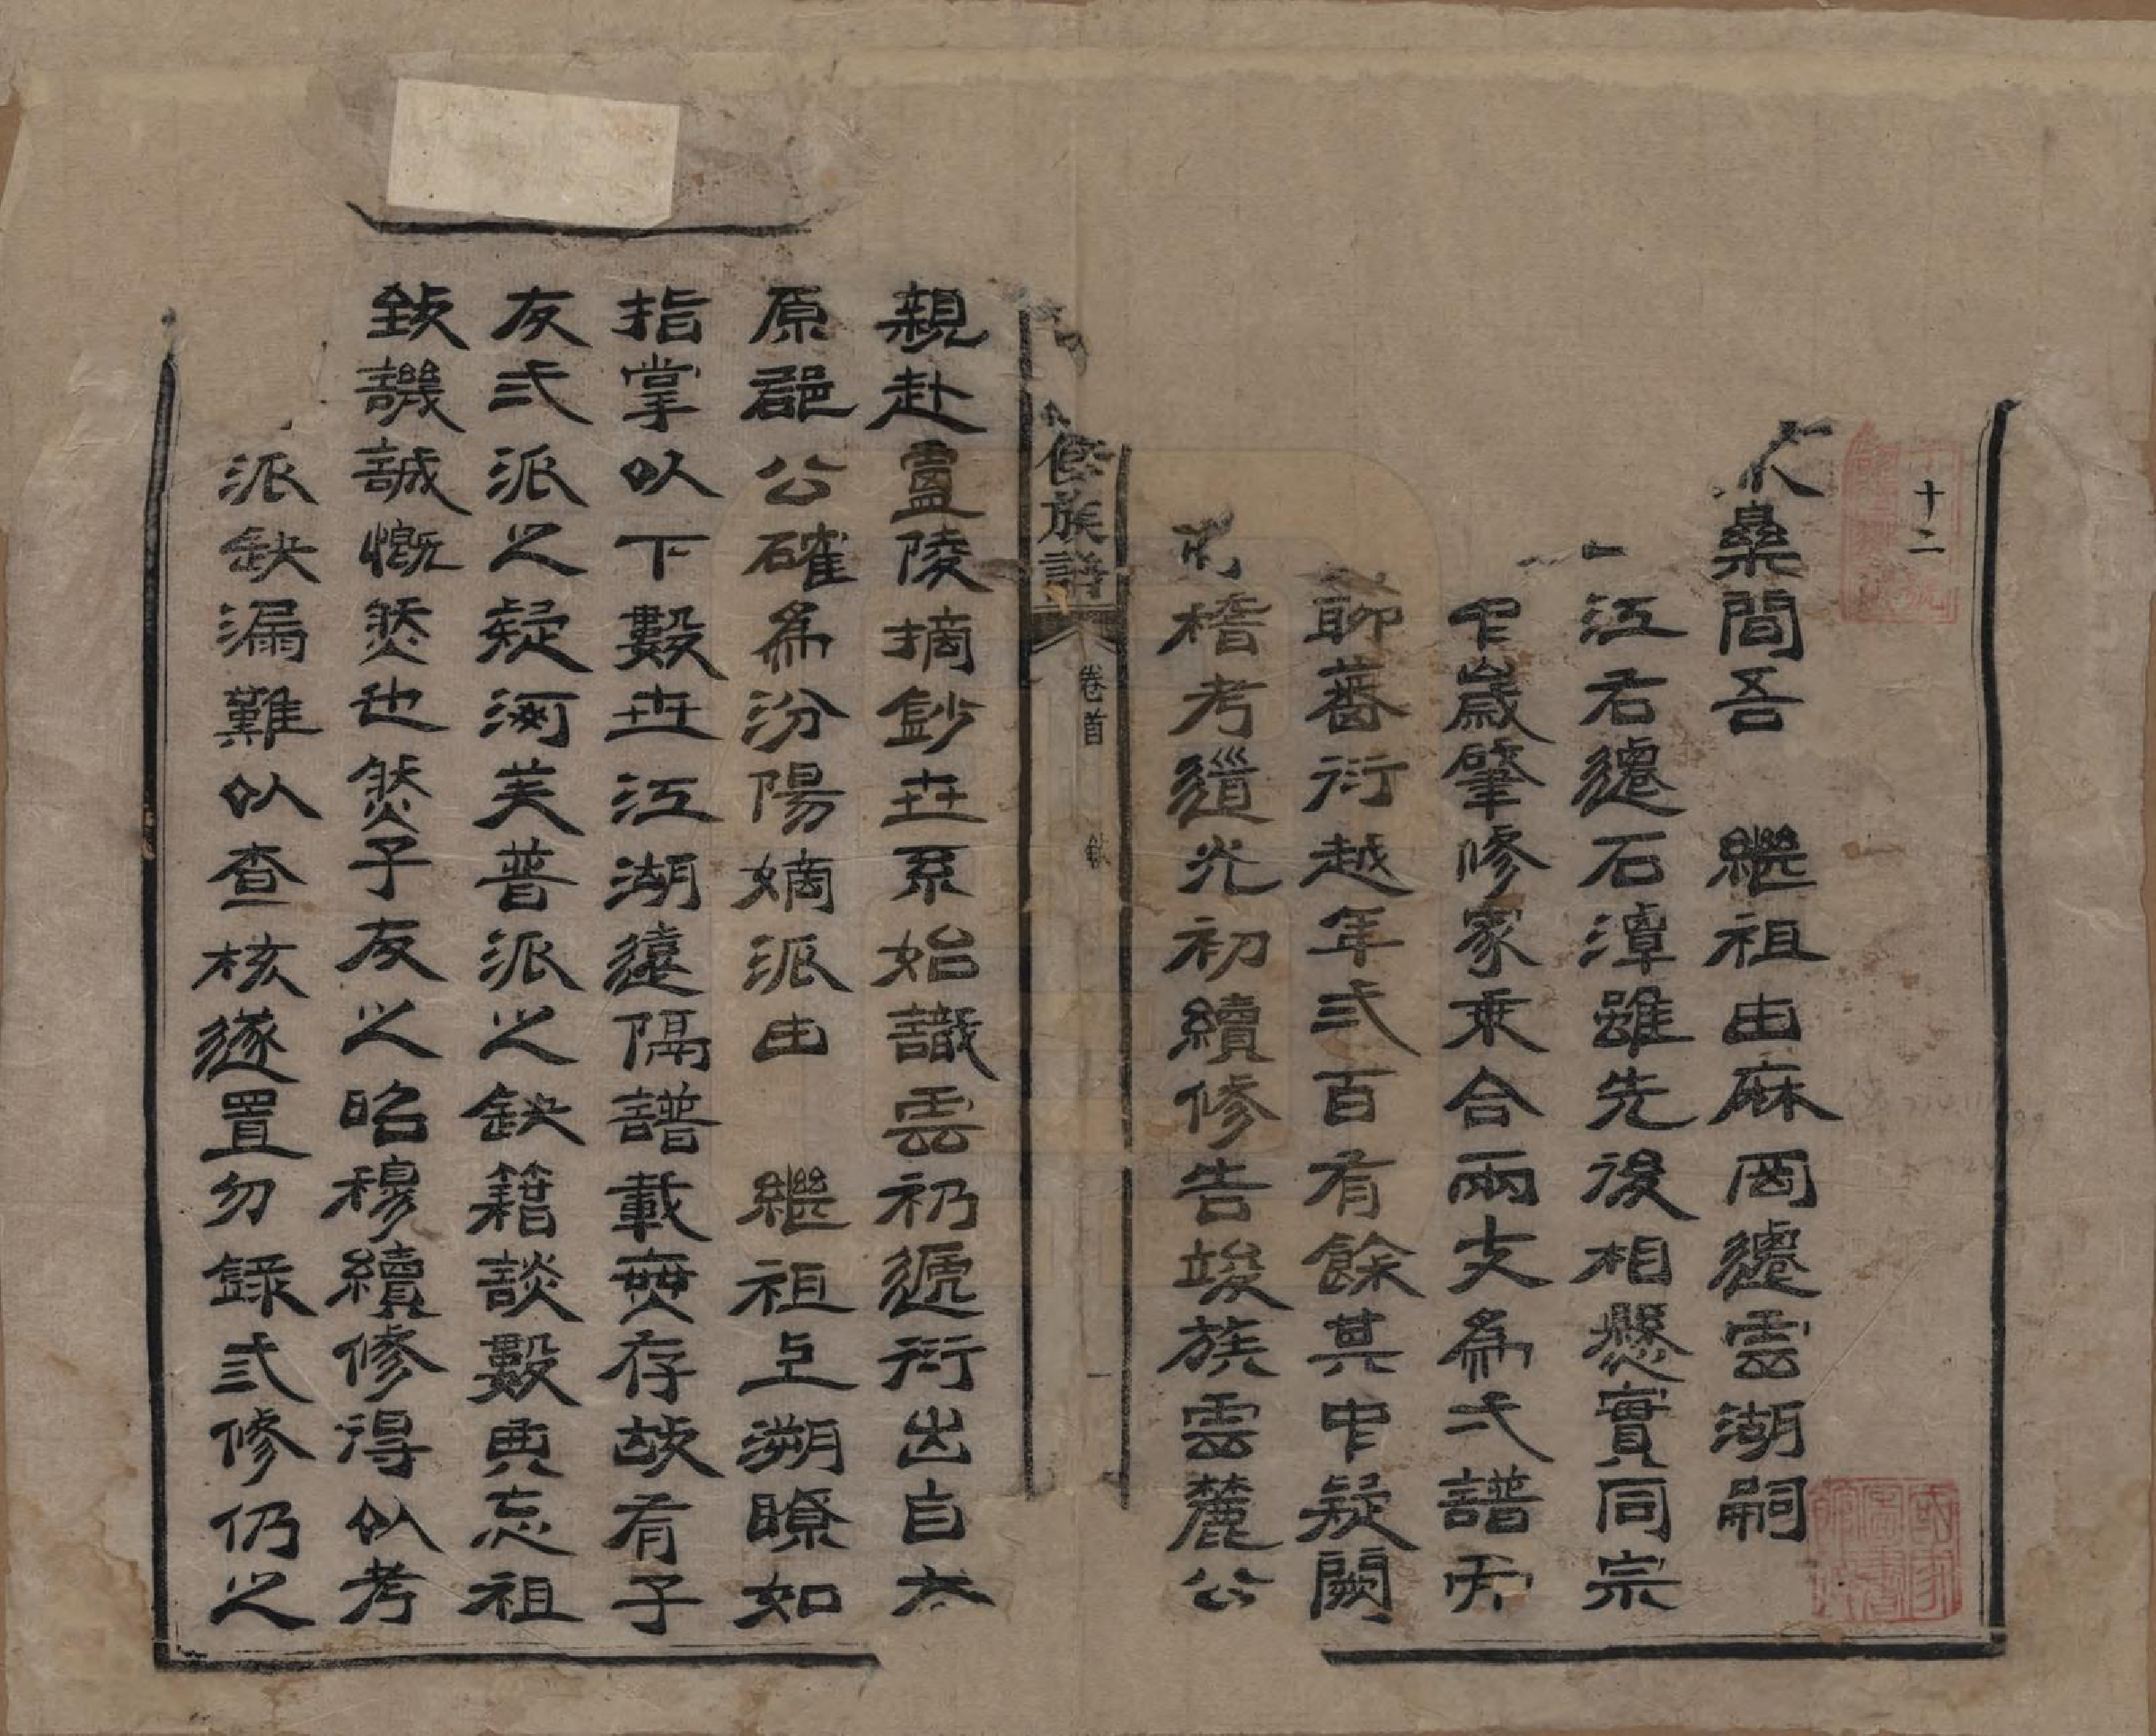 十二
桑間吾 繼祖由麻岡遷雲湖嗣
江右遷石潭雖先後相懸實同宗
中歲肇修家乘合兩支爲弌譜
聊蕃衍越年弍百有餘其中疑闕
稽考道光初續修告竣族雲麓公
族譜 卷首 敘 一
親赴盧陵摘鈔世系始識雲礽遞衍出自太
原郡公確爲汾陽嫡派由 繼祖上溯瞭如
指掌以下數世江湖遠隔譜載莫存故有子
友弍派之疑河美普派之缺籍談數典忘祖
致譏誠慨然也然子友之昭穆續修得以考
派缺漏難以查核遂置勿錄弍修仍之